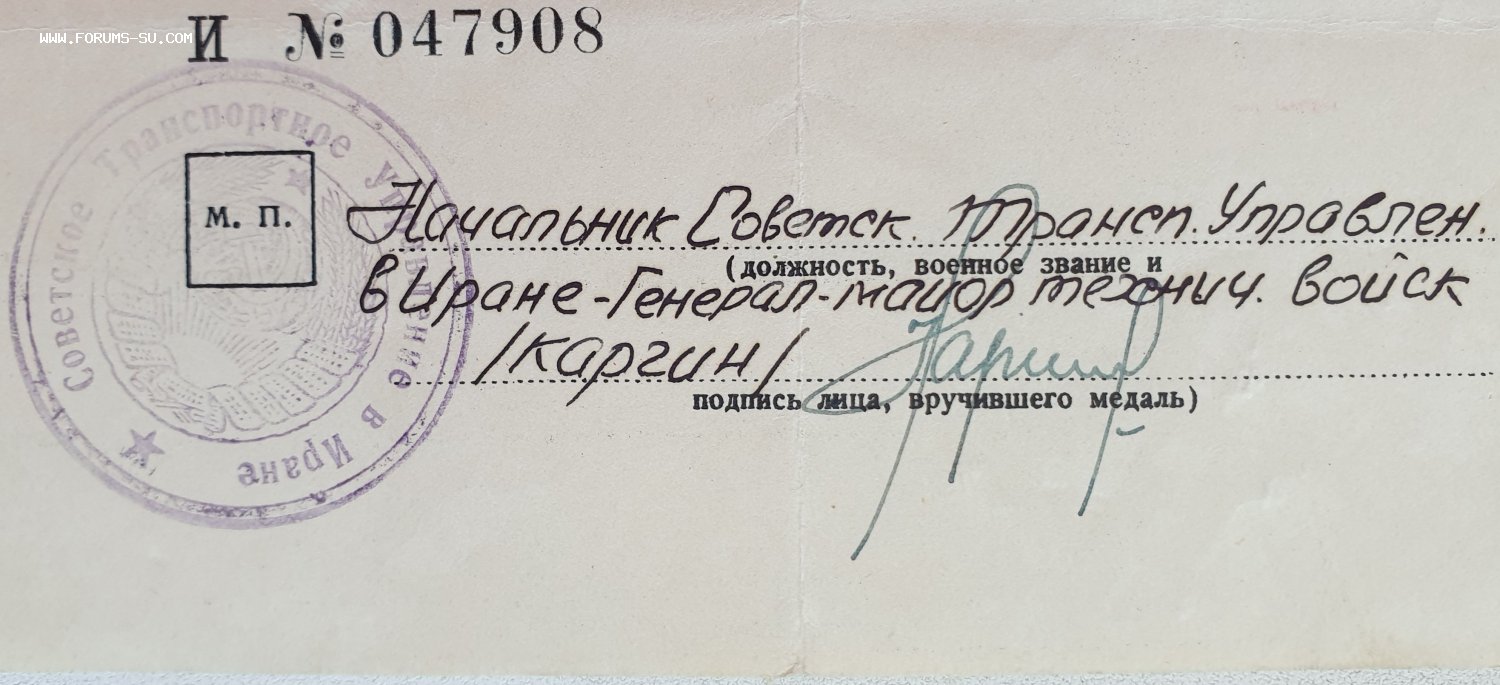 www.forums-su.com
И № 047908
Советское Транспортное Управление в Иране
М. П.
Начальник Советск. Трансп. Управлен.
(должность, военное звание и
в Иране-Генерал-майор технич. войск
/Каргин/ Каргин
подпись лица, вручившего медаль)